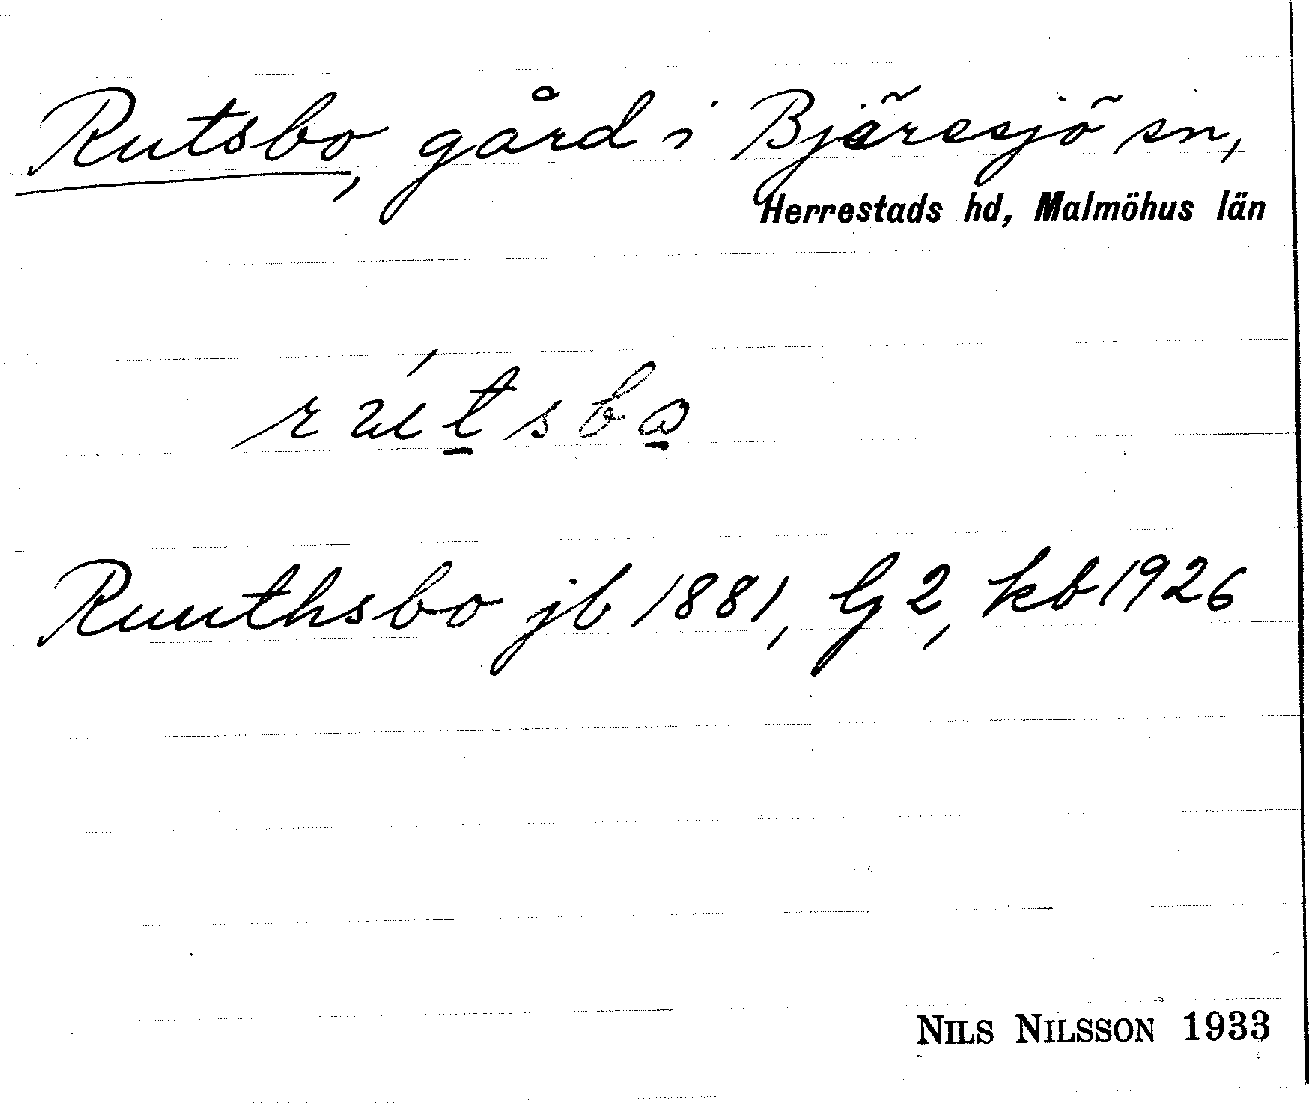 Rutsbo, gård i Bjäresjö sn,
Herrestads hd, Malmöhus län
rútsbo
Ruuthsbo jb 1881, G 2, kb 1926
NILS NILSSON 1933